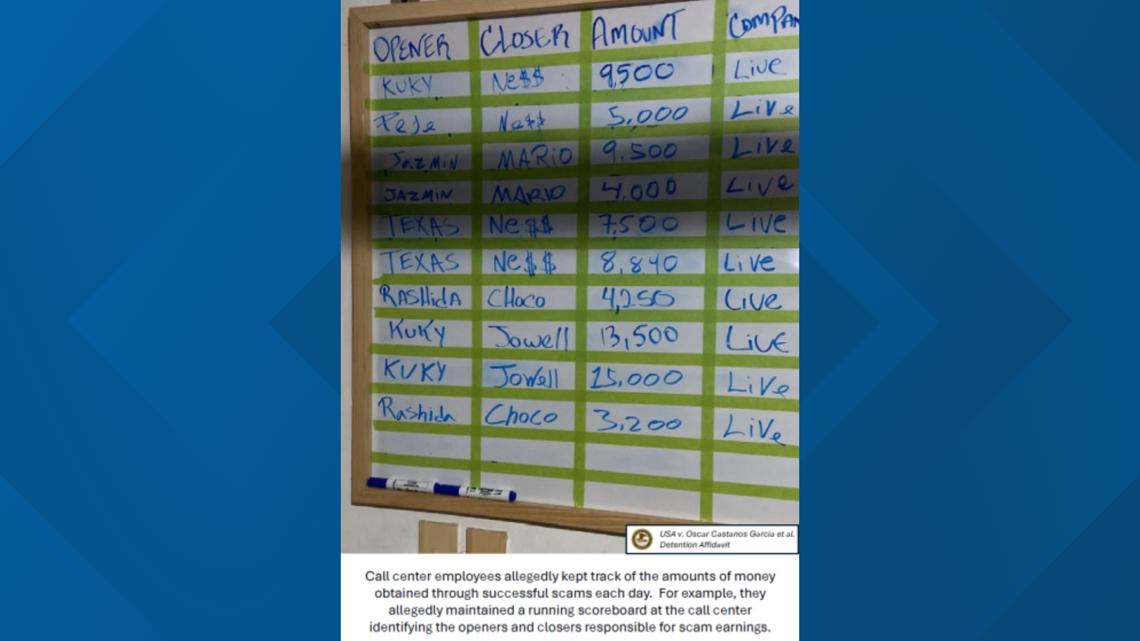 OPENER CLOSER AMOUNT COMPAN
KUKY Ne$$ 9,500 Live
PeJe Ne$$ 5,000 Live
JAZMIN MARIO 9.500 Live
JAZMIN MARIO 4,000 Live
TEXAS Ne$$ 7,500 Live
TEXAS Ne$$ 8,840 Live
RASHidA CHoco 4,250 Live
KUKY Jowell 13,500 LivE
KUKY Jowell 15,000 Live
Rashida Choco 3,200 Live
USA v. Oscar Castanos Garcia et al.
Detention Affidavit
Call center employees allegedly kept track of the amounts of money
obtained through successful scams each day. For example, they
allegedly maintained a running scoreboard at the call center
identifying the openers and closers responsible for scam earnings.